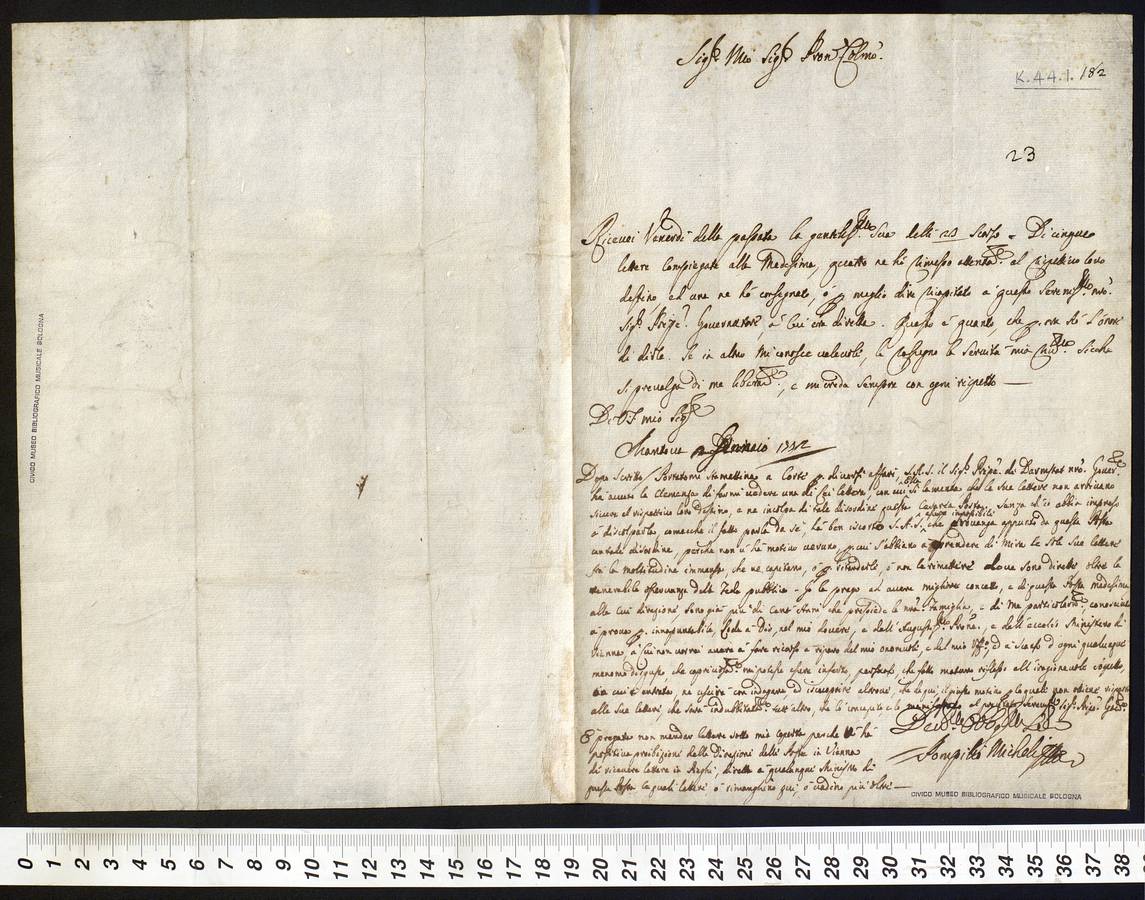 CIVICO MUSEO BIBLIOGRAFICO MUSICALE BOLOGNA
Sigr. Mio Sigr. Pron. Colmo.
K.44.1.182
23
Ricevei Venerdi della passata la gentiliss.ma Sua delli 23 Scorso. Di cinque
lettere Compiegate alla Medesima, quattro ne hò rimesso al rispettivo loro
destino, ed una ne hò consegnato, ò p meglio dire ricapitato a questo Sereniss.mo nro.
Sigr. Prnpe. Governatore, a lui era diretta. Questo è quanto, che p. ora hò l'onore
di dirle. Se in altro mi conosce valevole, le rassegno la servitù mia Sicche
si prevalga di me liberam.te, e mi creda sempre con ogni rispetto
Di V.S. mio Sigr.
Mantova Gennaio 1742
Dopo Scritto, Portatomi Stamattina a Corte p. diversi affari, S.A.S. il Sigr. Prnpe. di Darmstat nro. Gover.re
hà avuto la Clemenza di farmi vedere una di lei lettera, con cui si lamenta, che le Sue lettere non arrivano
sicure al rispettivo loro Destino, e ne incolpa di tale disordine questa Cesarea Posta. Senza ch'io abbia impreso
a discolparla, comeche il fatto parla da se, hà ben scorto S.A.S. essere impossibile che provenga appunto da questa Posta
un tale disordine, perche non v'hà motivo veruno, p cui s'abbiano a prendere di mira le sole Sue lettere
frà la moltitudine immensa, che ne capitano, ò p ritenerle, ò non la rimettere dove sono dirette oltre la
venerabile osservanza della Fede pubblica. Io la prego ad avere miglior concetto, e di questa Posta medesima
alla cui direzione, sono già più di Cent'Anni che presiede la nra. Famiglia, e di me particolarm.te, conosciuto
a prova p. innapuntabile, lode a Dio, nel mio dovere, e dall'Augustiss.ma Prona., e dall'eccelso Ministero di
Vienna, a cui non vorrei avere a fare ricorso a riparo del mio onore, e del mio Uffo., ed a scanso d'ogni qualunque
menomo disgusto, che capricciosam.te mi potesse essere inferto, fatto maturo riflesso all'irragionevole sospetto,
in cui è entrato, ne uscirà con indagare, ed iscoprire altrove, che da qui, il giusto motivo p la quale non ottiene risposta
alle Sue lettere, che sarà indubbitatam.te tutt'altro, che il concepito e manifestato al Sereniss.mo Sigr. Prnpe. Gov.re
È pregato non mandar lettere sotto mia coperta perche v'hà
positiva proibizione dalla Direzione delle Poste in Vienna
di ricevere lettere in Pieghi, dirette a qualunque Ministro di
questa Posta le quali lettere ò rimanghino qui, ò vadino più oltre
Pompilio Micheli
CIVICO MUSEO BIBLIOGRAFICO MUSICALE BOLOGNA
0 1 2 3 4 5 6 7 8 9 10 11 12 13 14 15 16 17 18 19 20 21 22 23 24 25 26 27 28 29 30 31 32 33 34 35 36 37 38